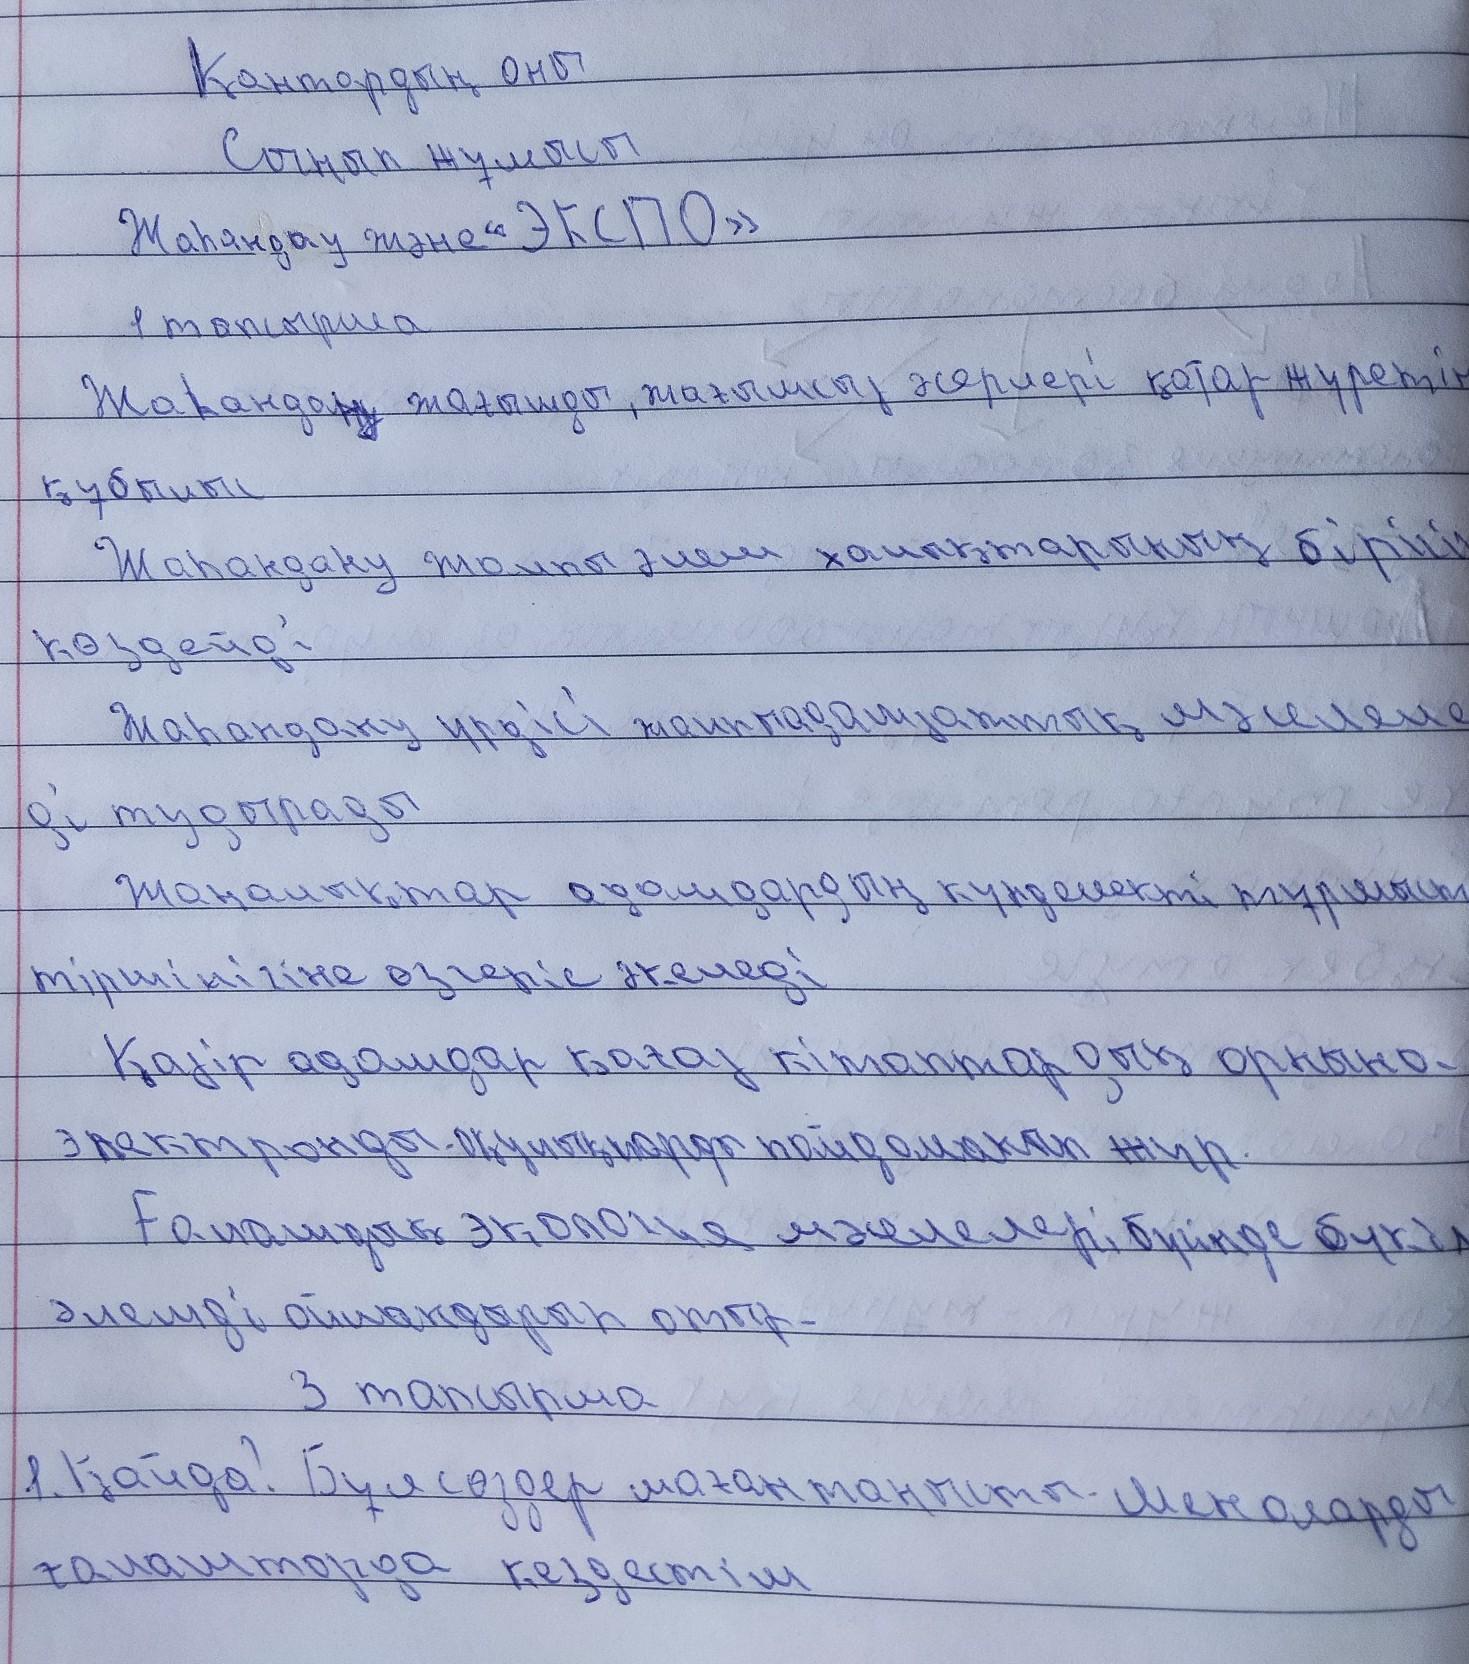 Қантардың оны
Сынып жұмысы
Жаһандау және "ЭКСПО»
1 тапсырма
Жаһандану жағымды, жағымсыз әсерлері қатар жүретін
құбылыс
Жаһандану жалпы әлем халықтарының бірігуін
көздейді
Жаһандану үрдісі жалпыадамзаттық мәселеле
ді тудырады
Жаңалықтар адамдардың күнделекті тұрмыст
тіршілігіне өзгеріс әкеледі
Қазір адамдар қағаз кітаптардың орнына-
электронды оқулықтарды пайдаланып жүр.
Ғаламдық экология мәселелері, бүінде бүкіл
әлемді ойландырып отыр-
3 тапсырма
1. Қайда? Бұл сөздер маған таңысты. Мен оларды
ғаламторда кездестім